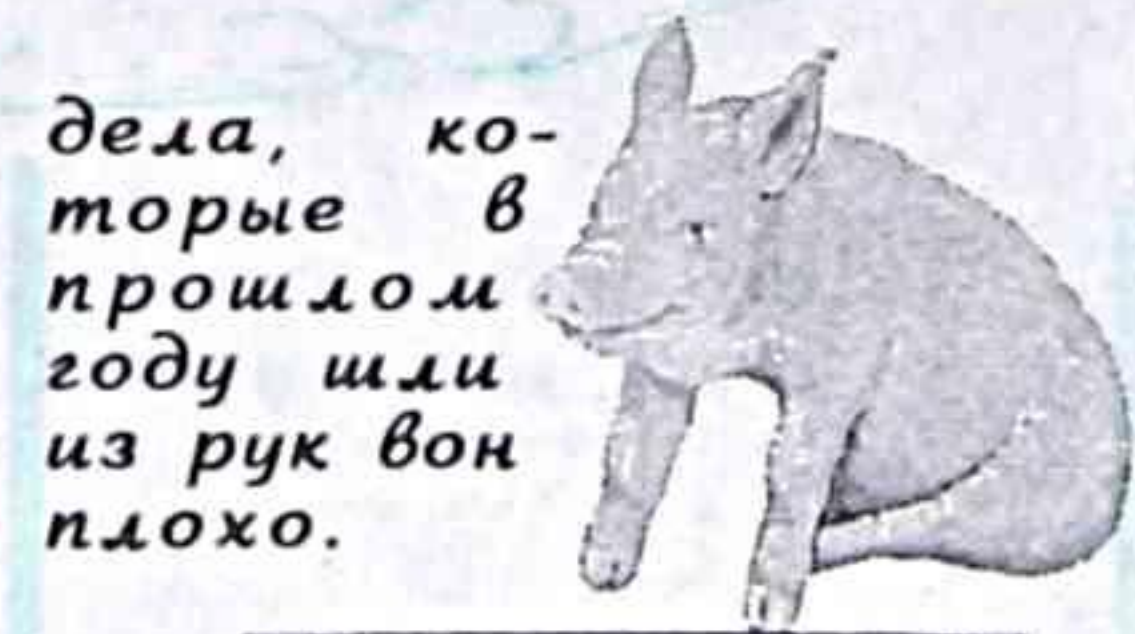 дела, ко-
торые в
прошлом
году шли
из рук вон
плохо.